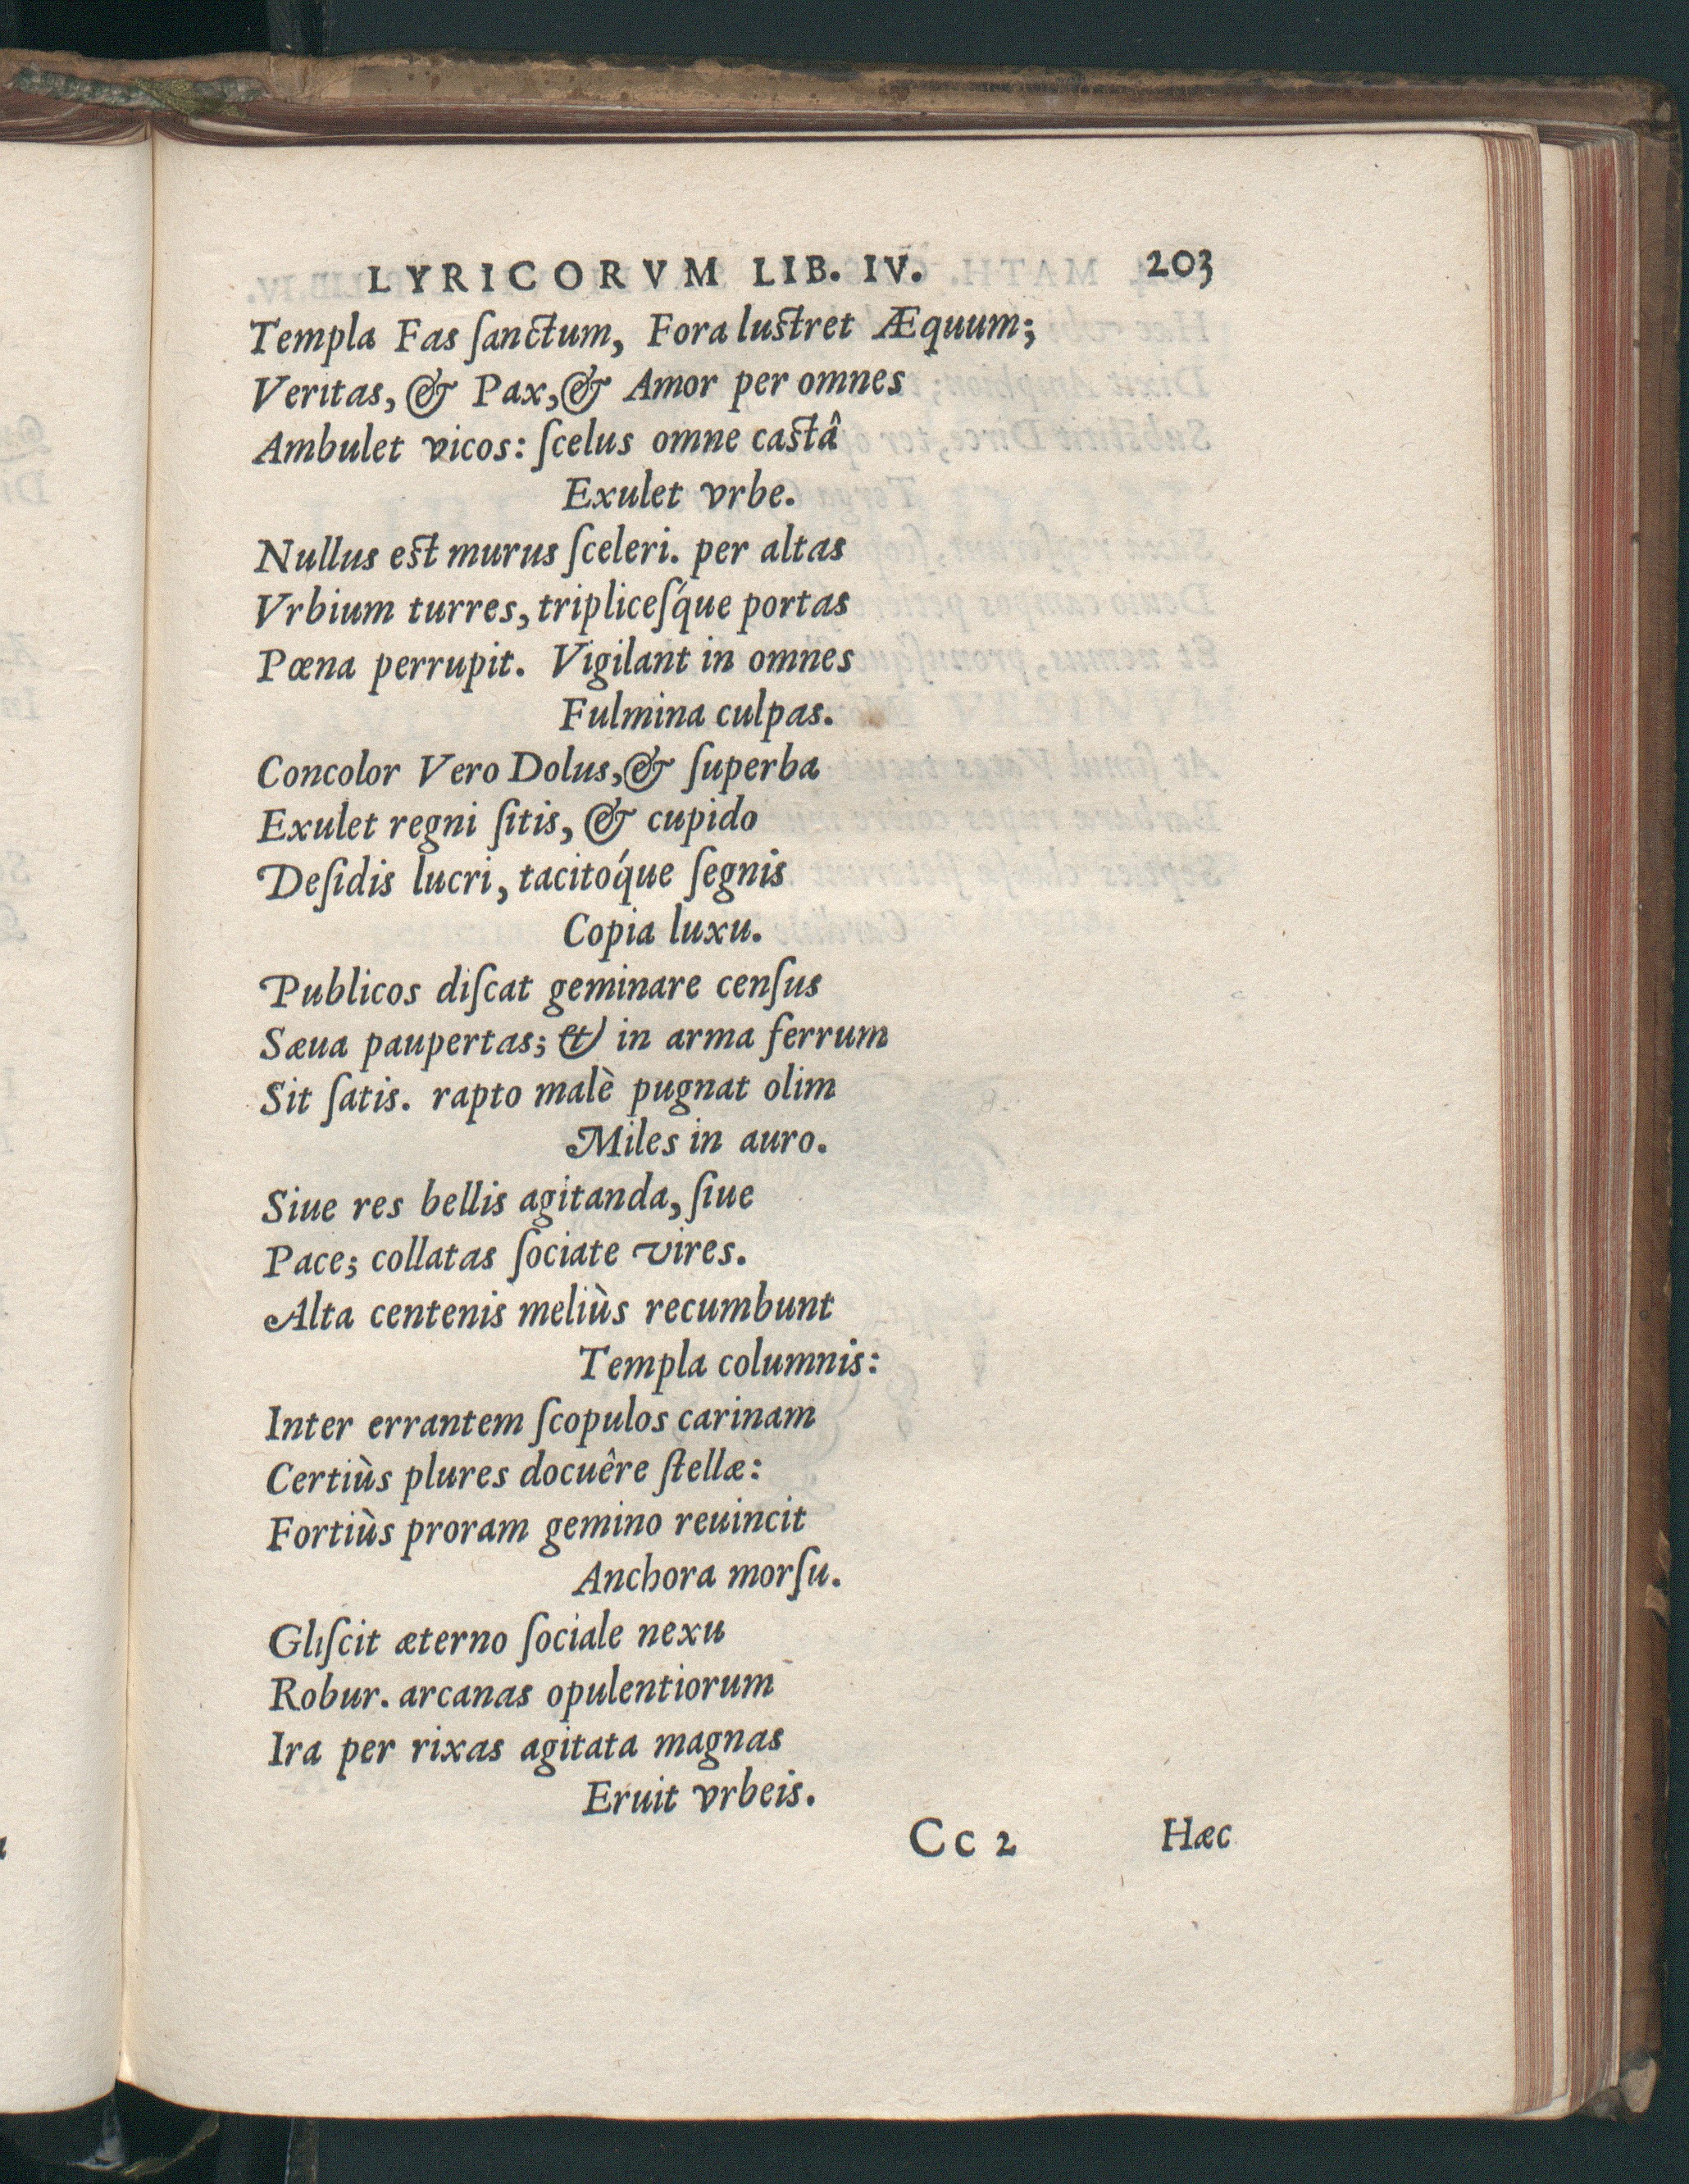 LYRICORVM LIB. IV. 203
Templa Fas ſanctum, Fora lustret Æquum;
Veritas, & Pax, & Amor per omnes
Ambulet vicos: ſcelus omne castâ
Exulet vrbe.
Nullus est murus ſceleri. per altas
Vrbium turres, tripliceſq́ue portas
Pœna perrupit. Vigilant in omnes
Fulmina culpas.
Concolor Vero Dolus, & ſuperba
Exulet regni ſitis, & cupido
Deſidis lucri, tacitoq́ue ſegnis
Copia luxu.
Publicos diſcat geminare cenſus
Sæua paupertas; & in arma ferrum
Sit ſatis. rapto malè pugnat olim
Miles in auro.
Siue res bellis agitanda, ſiue
Pace; collatas ſociate vires.
Alta centenis meliùs recumbunt
Templa columnis:
Inter errantem ſcopulos carinam
Certiùs plures docuêre ſtellæ:
Fortiùs proram gemino reuincit
Anchora morſu.
Gliſcit æterno ſociale nexu
Robur. arcanas opulentiorum
Ira per rixas agitata magnas
Eruit vrbeis.
Cc 2 Hæc